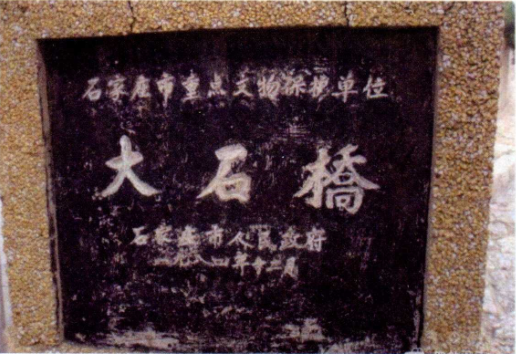 石家庄市重点文物保护单位
大石橋
石家庄市人民政府
一九八四年十二月